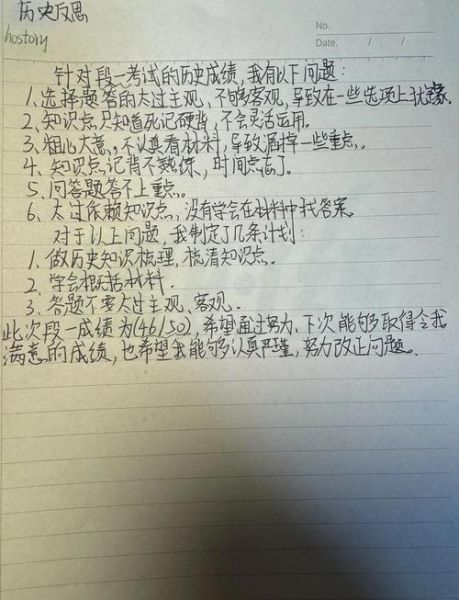 历史反思
hostory
No.
Date. / /
针对段一考试的历史成绩,我有以下问题:
1、选择题答的太过主观,不够客观,导致在一些选项上犹豫.
2、知识点只知道死记硬背,不会灵活运用。
3、粗心大意,不认真看材料,导致漏掉一些重点。
4、知识点记背不熟练,时间点忘了。
5、问答题答不上重点。
6、太过依赖知识点,没有学会在材料中找答案。
对于以上问题,我制定了几条计划:
1、做历史知识梳理,梳清知识点.
2、学会概括材料.
3、答题不要太过主观、客观.
此次段一成绩为(46/50),希望通过努力,下次能够取得令我
满意的成绩,也希望我能够认真严谨,努力改正问题。